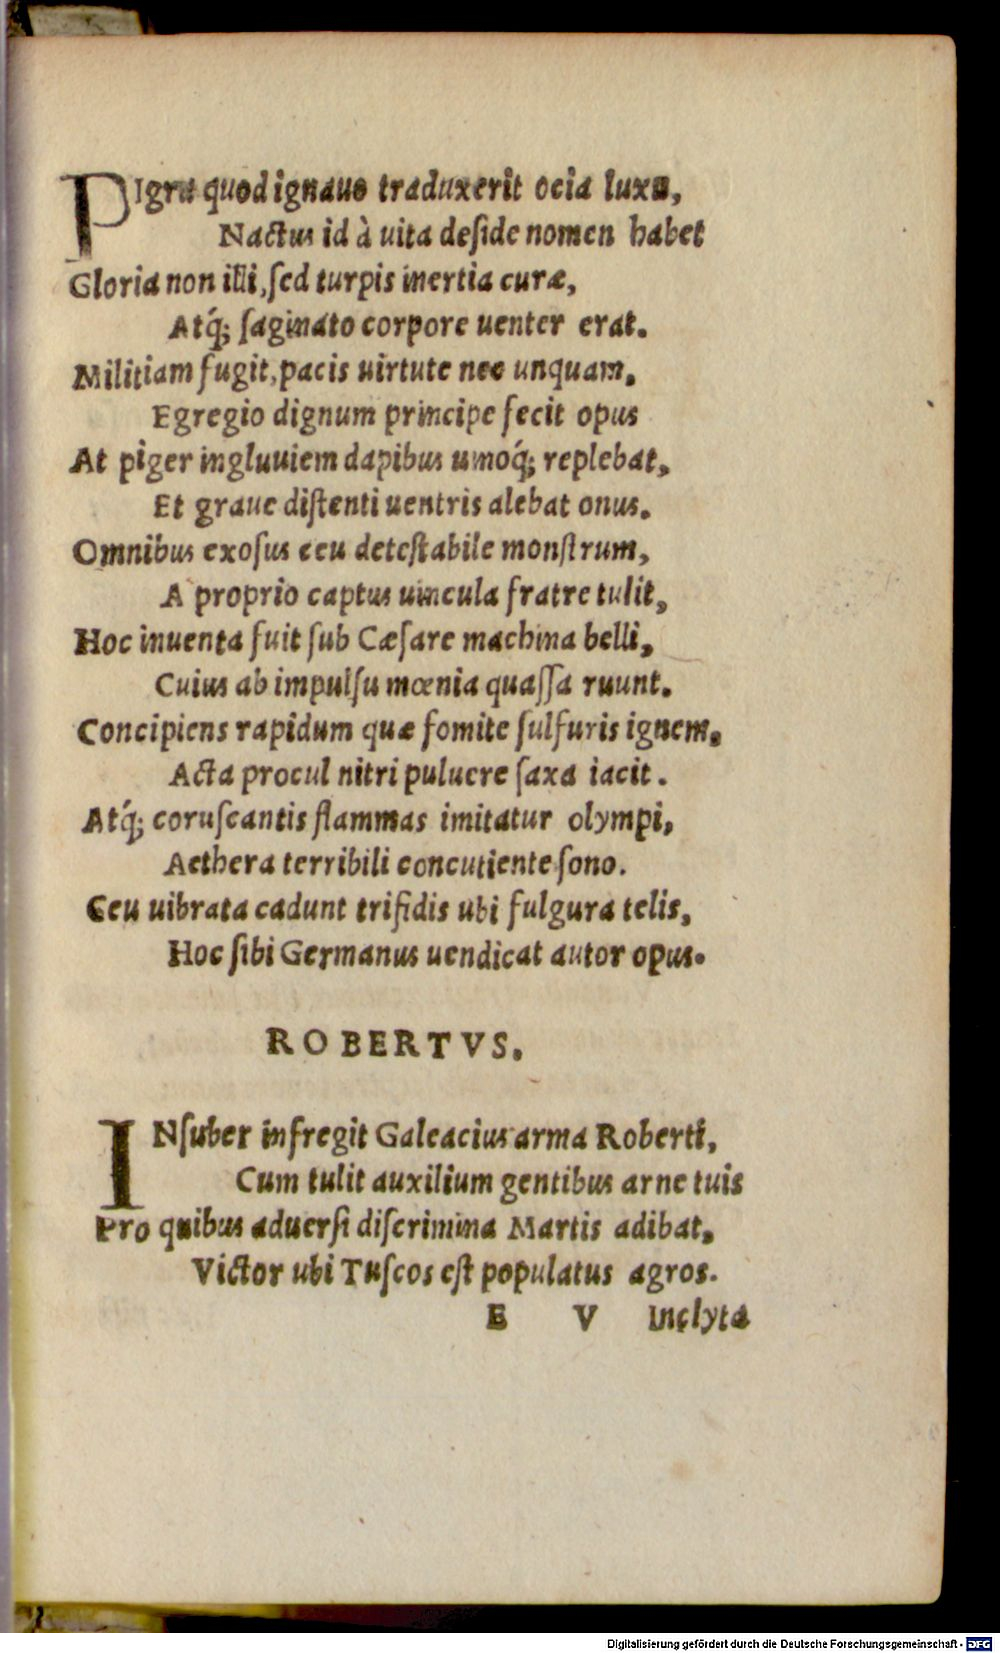 PIgra quod ignauo traduxerit ocia luxu,
Nactus id à uita deside nomen habet
Gloria non illi, sed turpis inertia curæ,
Atq́; saginato corpore uenter erat.
Militiam fugit, pacis uirtute nec unquam,
Egregio dignum principe fecit opus
At piger ingluuiem dapibus uinoq́; replebat,
Et graue distenti uentris alebat onus.
Omnibus exosus ceu detestabile monstrum,
A proprio captus uincula fratre tulit,
Hoc inuenta fuit sub Cæsare machina belli,
Cuius ab impulsu mœnia quassa ruunt.
Concipiens rapidum quæ fomite sulfuris ignem,
Acta procul nitri puluere saxa iacit.
Atq́; coruscantis flammas imitatur olympi,
Aethera terribili concutiente sono.
Ceu uibrata cadunt trifidis ubi fulgura telis,
Hoc sibi Germanus uendicat autor opus.
ROBERTVS.
INsuber infregit Galeacius arma Roberti,
Cum tulit auxilium gentibus arne tuis
Pro quibus aduersi discrimina Martis adibat,
Victor ubi Tuscos est populatus agros.
E V Inclyta
Digitalisierung gefördert durch die Deutsche Forschungsgemeinschaft - DFG